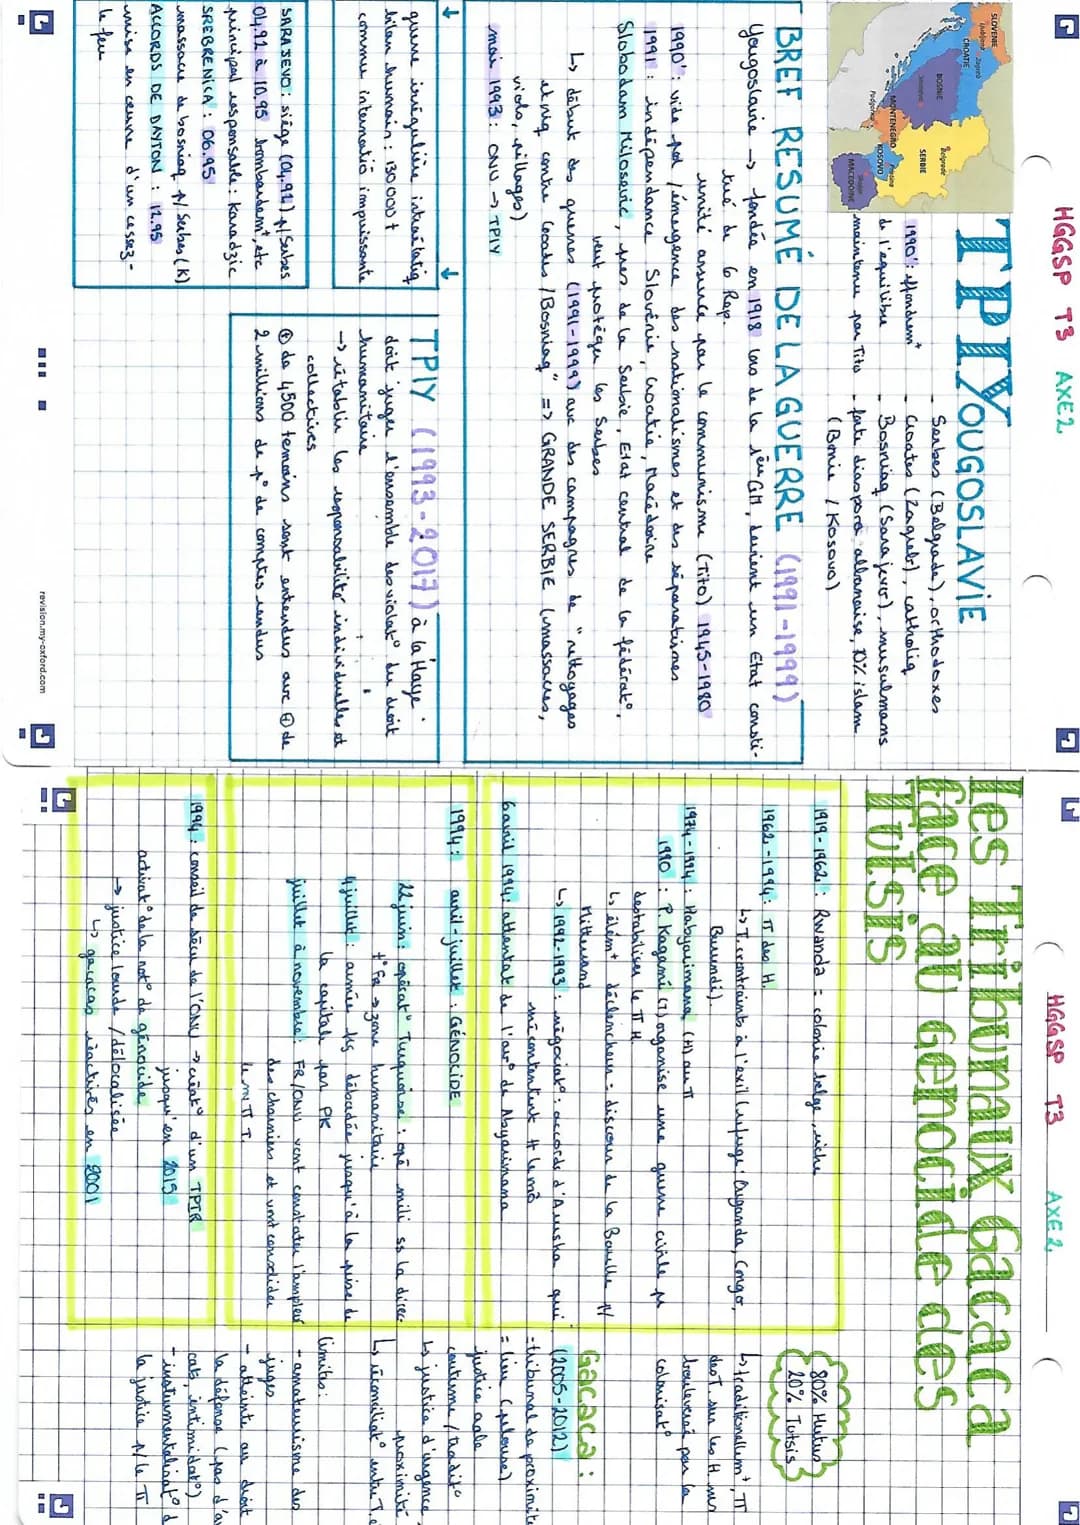 HGGSP T3 AXE 2
TPIYOUGOSLAVIE
SLOVENIE
Ljubljana
Zagreb
CROATIE
BOSNIE
Sarajevo
Belgrade
SERBIE
MONTENEGRO
Podgorica
KOSOVO
Pristina
Skopje
MACEDOINE
1990' : effondremt
de l'équilibre
maintenu par Tito
- Serbes (Belgrade), orthodoxes
- Croates (Zagreb), catholiq
- Bosniaq (Sarajevo), musulmans
- forte diaspora albanaise, 10% islam
(Bosnie / Kosovo)
BREF RESUMÉ DE LA GUERRE (1991-1999)
Yougoslavie → fondée en 1918 lors de la 1ère GM, devient un Etat consti-
tué de 6 Rep.
unité assurée par le communisme (Tito) 1945-1980
1990' : vide pol / émergence des nationalismes et des séparatismes
1991 : indépendance Slovénie, Croatie, Macédoine
Slobodam Milosevic, pres de la Serbie, Etat central de la fédérat°,
veut protéger les Serbes
↳ début des guerres (1991-1999) avec des campagnes de "nettoyages
ethniq contre Croates / Bosniaq" => GRANDE SERBIE (massacres,
viols, pillages)
mai 1993 : ONU → TPIY
guerre irrégulière interétatiq
bilan humain : 130 000 †
commu internatio impuissante
SARAJEVO : siège (04.92) p/ Serbes
04.92 à 10.95 bombardemt, etc
principal responsable : Karadzic
SREBRENICA : 06.95
massacre de bosniaq p/ Serbes (K)
ACCORDS DE DAYTON : 12.95
mise en œuvre d'un cessez-
le feu
TPIY (1993-2017) à la Haye
doit juger l'ensemble des violat° du droit
humanitaire
→ rétablir les responsabilités individuelles et
collectives
⊕ de 4500 temoins sont entendus avec ⊕ de
2 millions de p° de comptes rendus
revision.my-oxford.com
HGGSP T3 AXE 2
Les Tribunaux Gacaca
face au genocide des
Tutsis
1919-1962 : Rwanda = colonie belge, riche
1962-1994 : π des H.
↳ T. contraints à l'exil (refuge : Ouganda, Congo,
Burundi).
1974-1994 : Habyarimana (H) au π
1990 : P. Kagamé (T) organise une guerre civile pr
destabiliser le π H
↳ élémt déclencheur = discours de la Baulle p/
Mitterand
↳ 1992-1993 : négociat° : accords d'Arusha qui
mécontentent H le mo
6 avril 1994 : attentat de l'av° de Habyarimana
1994 : avril-juillet : GÉNOCIDE
22 juin : opérat° Turquoise : opé mili ss la direc-
t° Fr → zone humanitaire
4 juillet : armée ts débordée jusqu'à la prise de
la capitale par PK
juillet à novembre : FR/ONU vont constater l'ampleur
des charniers et vont consolider
le π T
1994 : conseil de sécu de l'ONU → créat° d'un TPIR
jusqu'en 2015
activat° de la not° de génocide
→ justice lourde / délocalisée
↳ gacacas réactivés en 2001
80% Hutus
20% Tutsis
↳ traditionellemt, π
des T. sur les H. mis
bouleversé par la
colonisat°
Gacaca :
(2005-2012)
= tribunal de proximité
= lieu (pelouse)
justice agile
coutume / tradit°
↳ justice d'urgence
proximité
↳ réconciliat° entre T. e
limites :
- amateurisme des
juges
- atteinte au droit
la défense (pas d'av
cats, intimidat°)
- instrumentalisat° d
la justice p/ le π